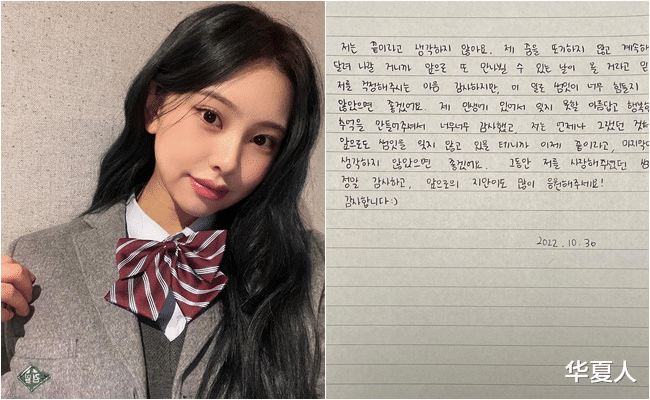 저는 끝이라고 생각하지 않아요. 제 꿈을 포기하지 않고 계속하
달려 나갈 거니까 앞으로 또 만나뵐 수 있는 날이 올 거라고 믿
저를 걱정해주시는 마음 감사하지만, 이 일로 썸잇이 너무 힘들지
않았으면 좋겠어요. 제 인생에 있어서 잊지 못할 아름답고 행복한
추억을 만들어주셔서 너무너무 감사했고 저는 언제나 그랬던 것처
앞으로도 썸잇을 잊지 않고 있을 테니까 이제 끝이라고, 마지막이
생각하지 않았으면 좋겠어요. 그동안 저를 사랑해주셨던
정말 감사하고, 앞으로의 지안이도 많이 응원해주세요!
감사합니다 :)
2022. 10. 30
华夏人